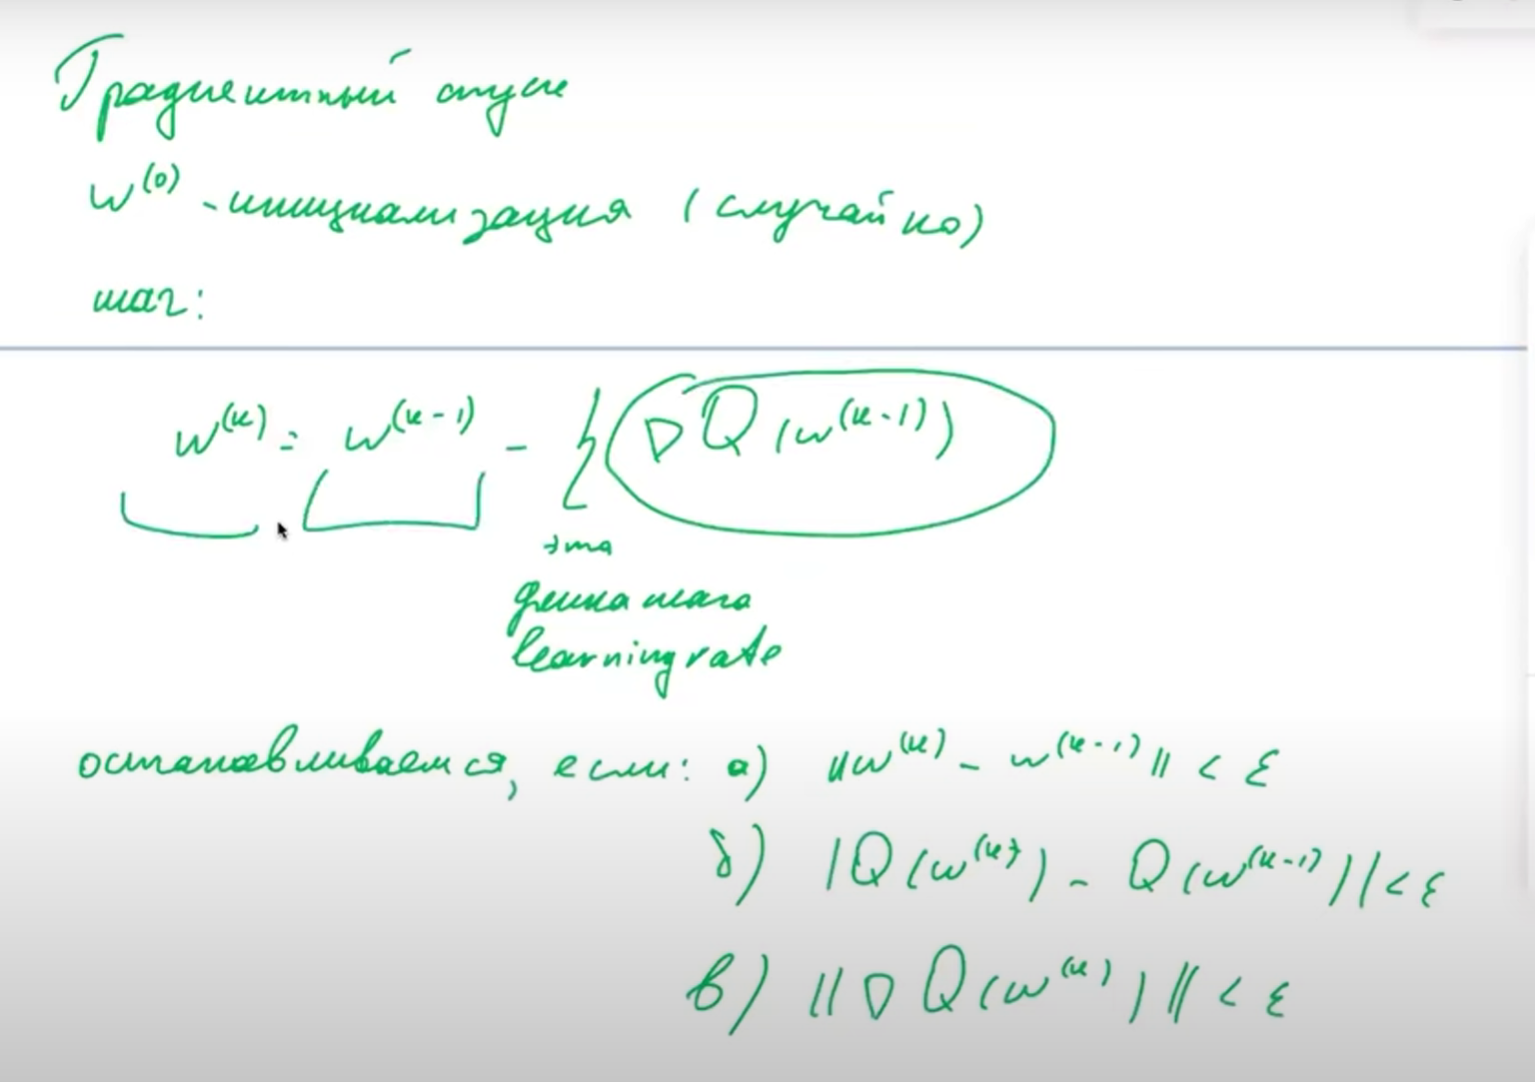 Градиентный спуск
w^(0) - инициализация (случайно)
шаг:
w^(k) = w^(k-1) - η ∇Q(w^(k-1))
эта
длина шага
learning rate
останавливаемся, если: а) ||w^(k) - w^(k-1)|| < ε
б) |Q(w^(k)) - Q(w^(k-1))| < ε
в) ||∇Q(w^(k))|| < ε